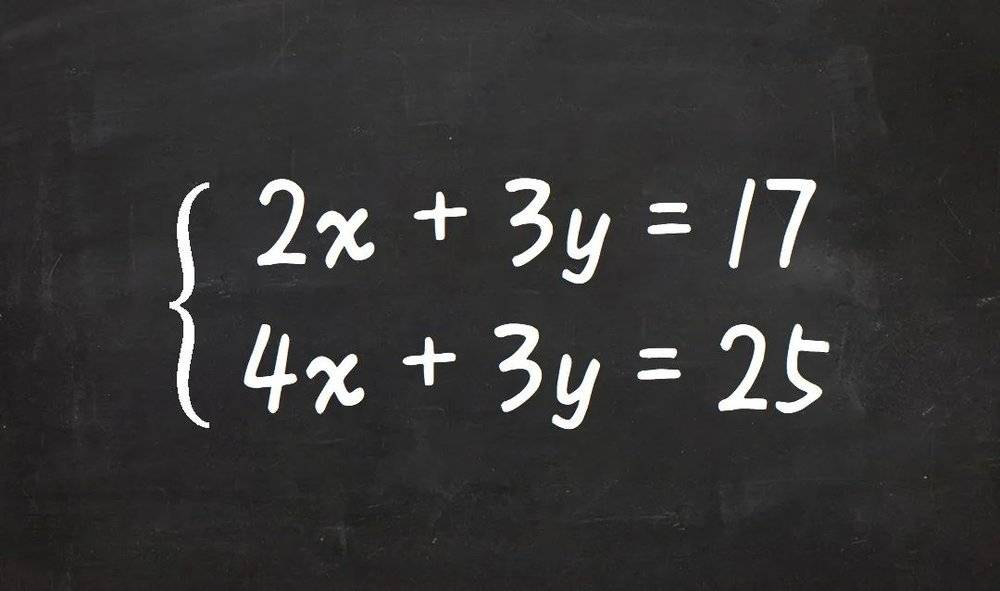 2x + 3y = 17
4x + 3y = 25